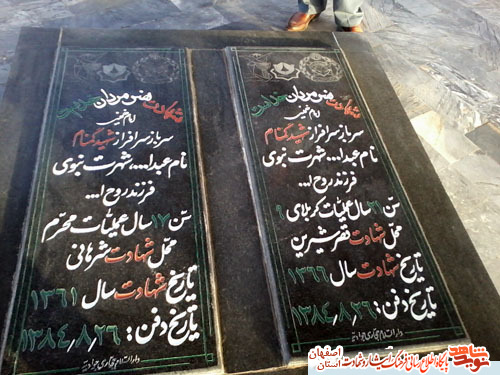 شهادت هنر مردان خداست
امام خمینی
سرباز سرافراز شهید گمنام
نام عبدا... شهرت نبوی
فرزند روح ا...
سن ۲۱ سال عملیات کربلای ۹
محل شهادت قصر شیرین
تاریخ شهادت سال ۱۳۶۶
تاریخ دفن: ۱۳۸۴٫۸٫۲۶
شهادت هنر مردان خداست
امام خمینی
سرباز سرافراز شهید گمنام
نام عبدا... شهرت نبوی
فرزند روح ا...
سن ۱۷ سال عملیات محرم
محل شهادت شرهانی
تاریخ شهادت سال ۱۳۶۱
تاریخ دفن: ۱۳۸۴٫۸٫۲۶
پایگاه اطلاع رسانی فرهنگ ایثار و شهادت
استان اصفهان
نوید شاهد